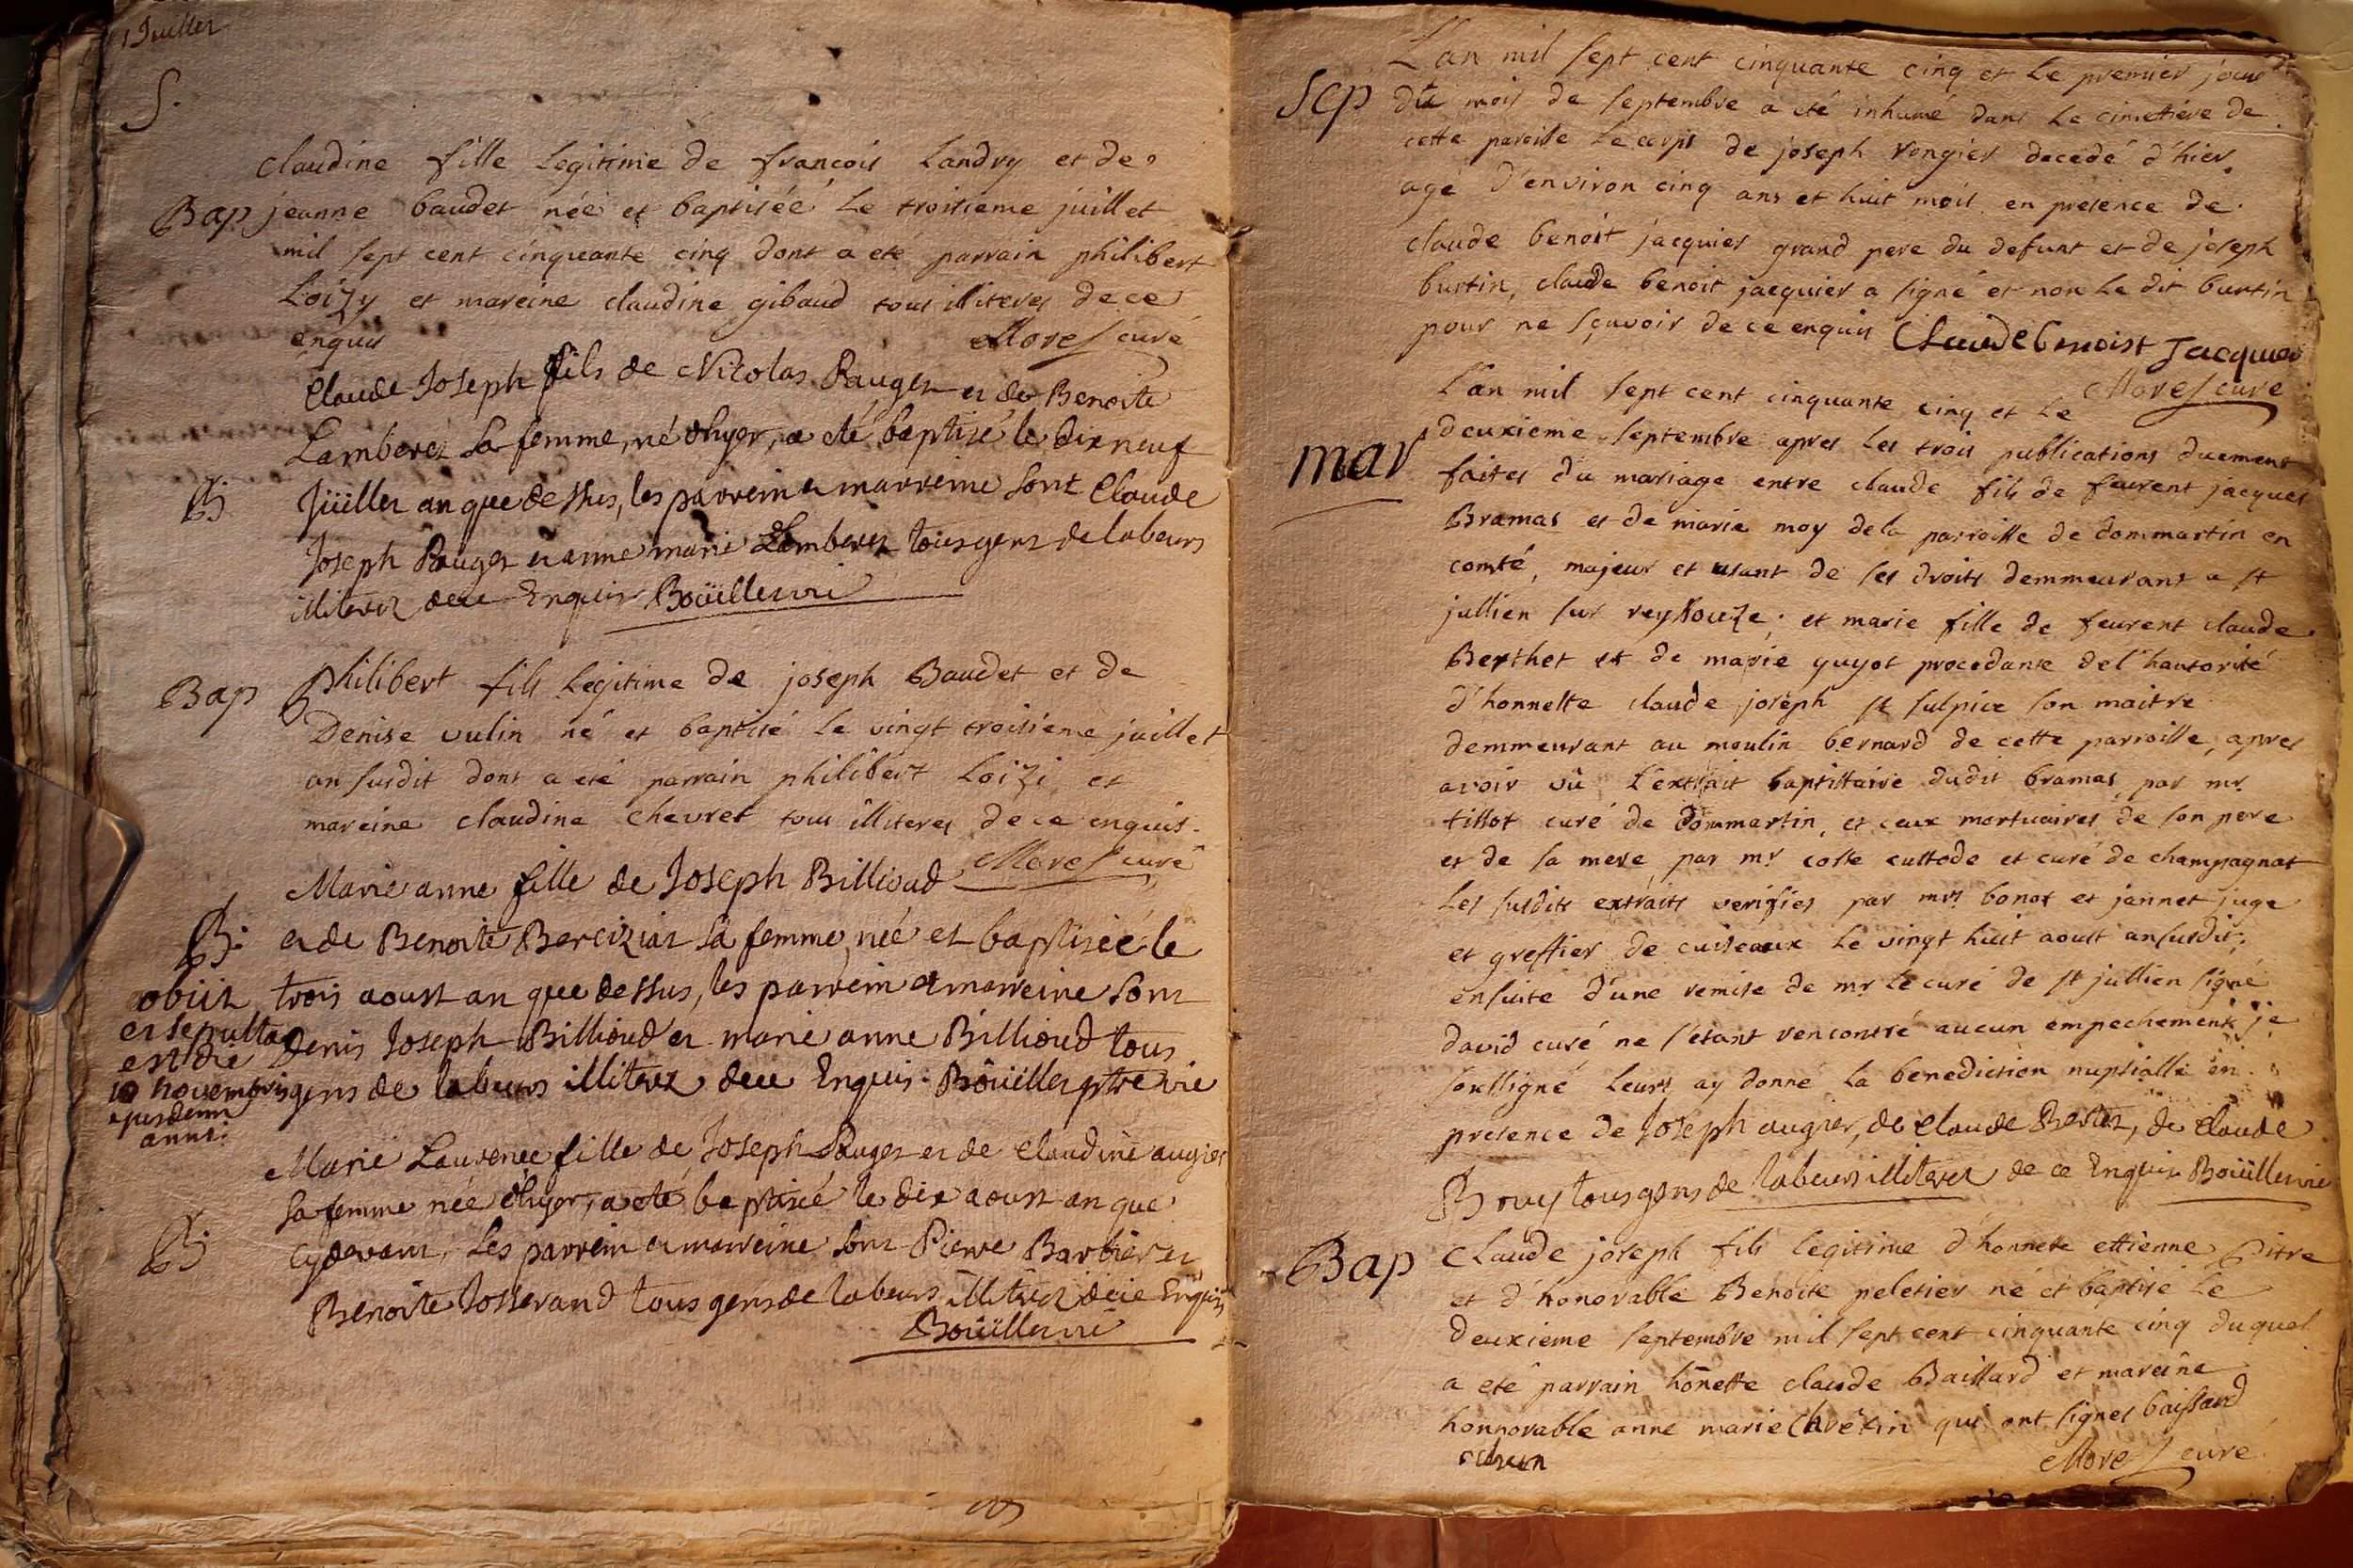 Juillet
S.
claudine fille legitime de francois Landry et de
Bap jeanne baudet née et baptiseé le troisieme juillet
mil sept cent cinquante cinq dont a eté parrain philibert
Loizy et mareine claudine gibaud tous illiteres de ce
enquis Morel curé
Claude Joseph fils de Nicolas Pauget et de Benoite
Lamberet sa femme, né d'hyer, a eté baptisé le dix neuf
B. Juillet an que dessus, les parrein et marreine sont Claude
Joseph Pauget et anne marie Lamberet tous gens de labeurs
illiterez de ce Enquis Boüillet vic
Bap philibert fils legitime de joseph Baudet et de
Denise vulin né et baptisé le vingt troisieme juillet
an susdit dont a eté parrain philibert Loizi et
mareine claudine chevret tous illiteres de ce enquis.
Morel curé
Marie anne fille de Joseph Billioud
B. et de Benoite Bereiziat sa femme née et baptiseé le
trois aoust an que dessus, les parrein et marreine sont
Denis Joseph Billioud et marie anne Billioud tous
gens de labeurs illiterez de ce Enquis. Boüillet ptre vic
obiit
et sepulta
est die
10 novembris
ejusdem
anni.
Marie Laurence fille de Joseph Pauget et de Claudine augier
sa femme née d'hyer, a eté baptiseé le dix aoust an que
B. cydevant, Les parrein et marreine sont Pierre Barbier et
Benoite Josserand tous gens de labeurs illiterez de ce Enquis
Boüillet vic
L'an mil sept cent cinquante cinq et le premier jour
Sep du mois de septembre a eté inhumé dans le cimettiére de
cette paroisse le corps de joseph vongier decedé d'hier
agé d'environ cinq ans et huit mois en presence de
claude benoit jacquier grand pere du defunt et de joseph
burtin, claude benoit jacquier a signé et non le dit burtin
pour ne sçavoir de ce enquis Claude benoist Jacquier
Morel curé
L'an mil sept cent cinquante cinq et le
mar deuxieme septembre apres les trois publications duement
faites du mariage entre claude fils de feurent jacques
Bramas et de marie moy de la parroisse de dommartin en
comté, majeur et usant de ses droits demmeurant a st
jullien sur reyssouze; et marie fille de feurent claude
Berthet et de marie guyot procedante de l'hautorité
d'honnette claude joseph st sulpice son maitre
demmeurant au moulin bernard de cette parroisse, apres
avoir vû l'extrait baptistaire dudit bramas, par mr
tissot curé de dommartin, et ceux mortuaires de son pere
et de sa mere, par mr coste custode et curé de champagnat
les susdits extraits verifies par mrs bonot et jannet juge
et greffier de cuiseaux le vingt huit aoust an susdit,
ensuite d'une remise de mr le curé de st jullien signé
david curé ne s'etant rencontré aucun empechement je
soussigné leurs ay donné la benediction nuptialle en
presence de Joseph augier, de Claude Bertet, de Claude
Brouy tous gens de labeurs illiterez de ce Enquis Boüillet vic
Bap Claude joseph fils legitime d'honnete ettienne Pitre
et d'honorable Benoite peletier né et baptisé le
deuxieme septembre mil sept cent cinquante cinq duquel
a eté parrain honette claude Baissard et mareine
honnorable anne marie Chrétin qui ont signes baissard
Morel curé